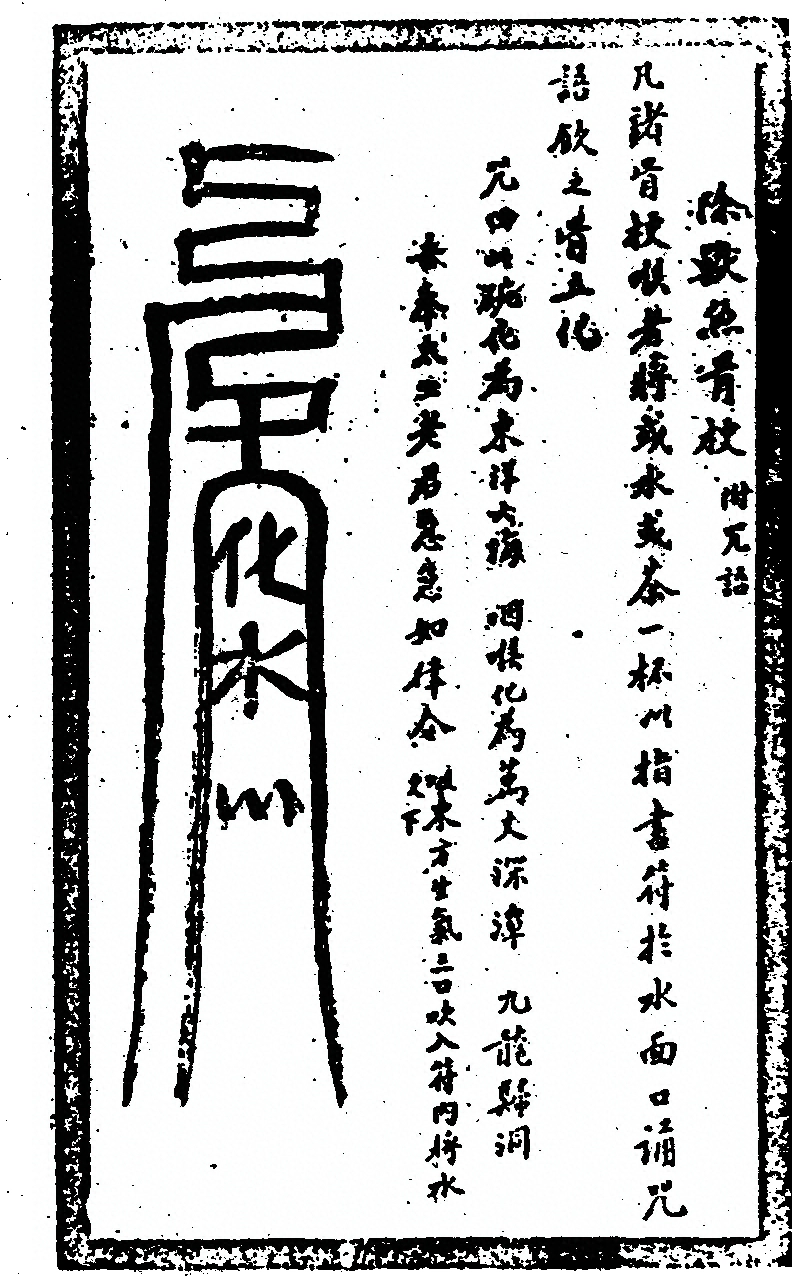 除獸魚骨梗 附咒語
凡諸骨梗喉者將或水或茶一杯以指畫符於水面口誦咒
語飲之骨立化
咒曰此碗化為東洋大海 咽喉化為萬丈深潭 九龍歸洞
吾奉太上老君急急如律令 吸東方生氣三口吹入符內將水
文下
化
水